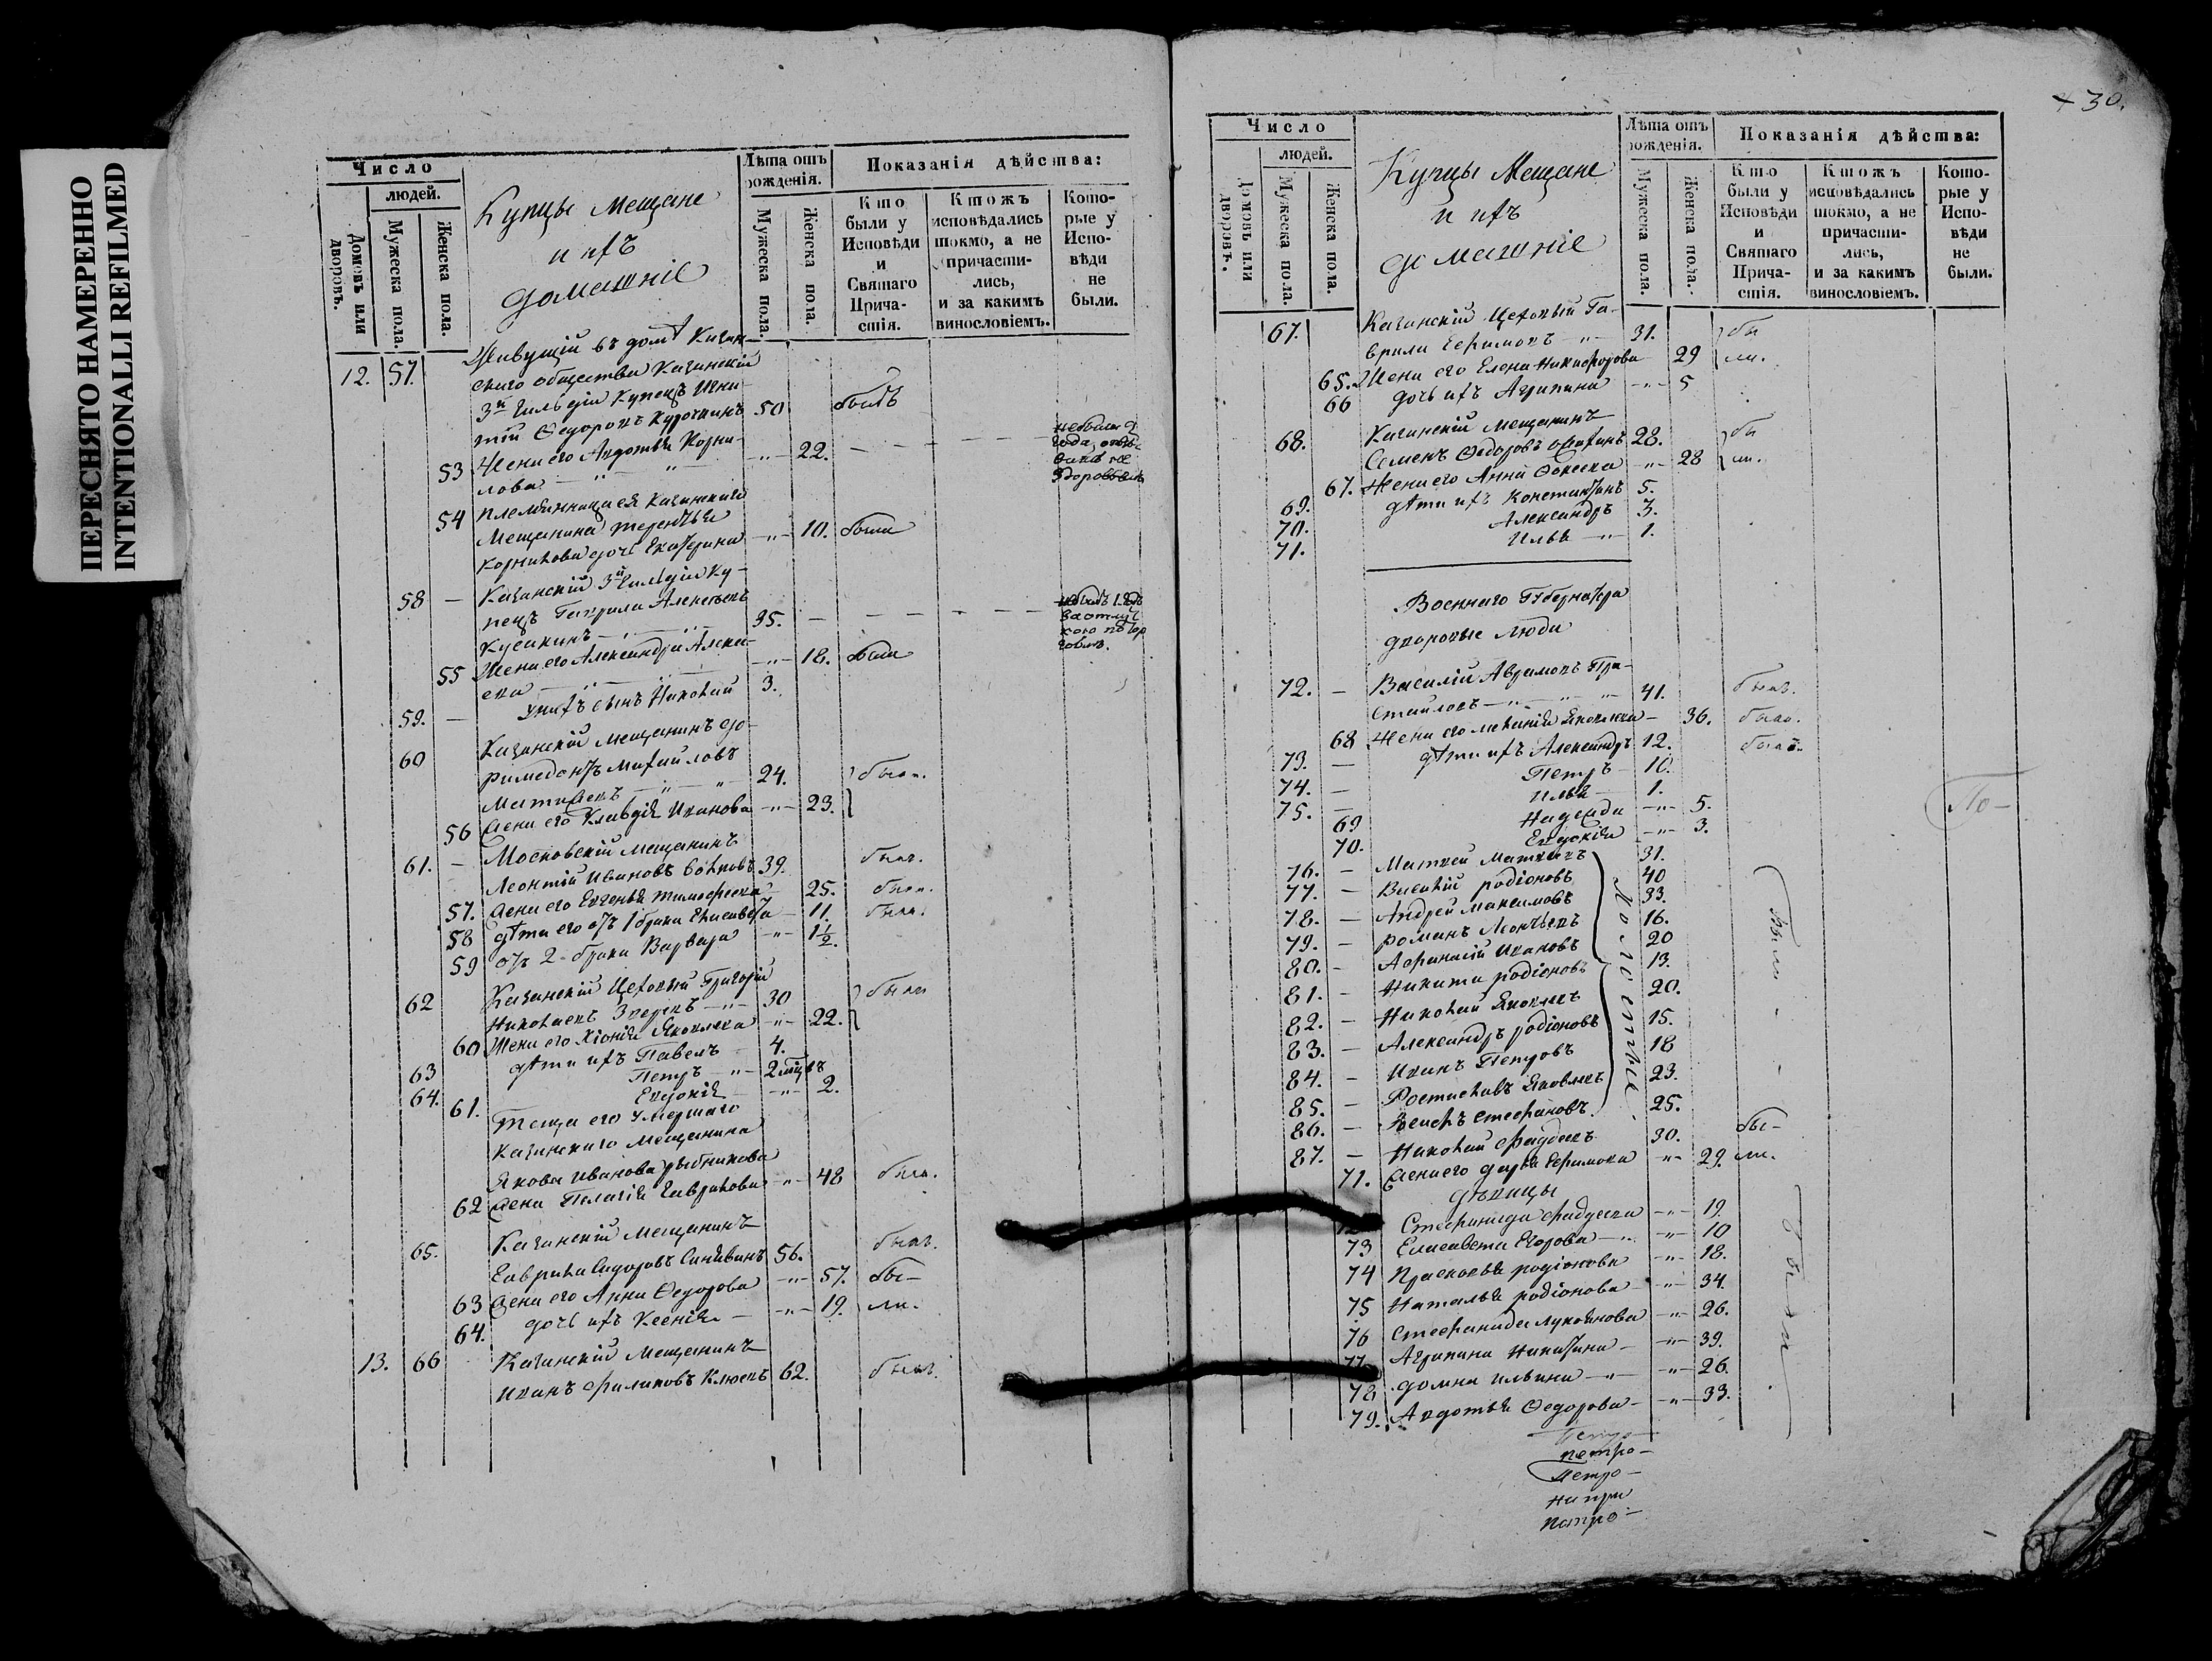 ПЕРЕСНЯТО НАМЕРЕННО
INTENTIONALLI REFILMED
Число
людей.
Домовъ или дворовъ.
Мужеска пола.
Женска пола.
Купцы Мещане
и ихъ
домашніе
Лѣта отъ рожденія.
Мужеска пола.
Женска пола.
Показанія дѣйства:
Кто были у Исповѣди и Святаго Причастія.
Ктожъ исповѣдались токмо, а не причастились, и за какимъ винословіемъ.
Которые у Исповѣди не были.
12. 57. Живущій въ домѣ Казан-
скаго общества Казанскій
3й Гильдіи Купецъ Игна-
тій Ѳедоровъ Курочкинъ 50 былъ
53 Жена его Авдотья Корни-
лова 22.
54 племянница ея Казанскаго
Мещанина Терентья
Корнилова дочь Екатерина 10. была
58 Казанскій 3й Гильдіи Ку-
пецъ Гаврила Алексѣевъ
Кусакинъ 35.
55 Жена его Александра Алекс-
ева 18. была
59. у нихъ сынъ Николай 3.
60 Казанскій Мещанинъ До-
римедонтъ Михайловъ
24. были.
56 Жена его Клавдія Иванова 23.
61. Московскій Мещанинъ
Леонтій Ивановъ 39. былъ.
57. Жена его Евгенья Тимофеева 25. была.
58 дѣти его отъ 1 брака Елисавета 11. была.
59 отъ 2 брака Варвара 1½.
62 Казанскій Цеховый Григорій
Николаевъ Зверевъ 30 были
60 Жена его Хіонія Яковлева 22.
63 дѣти ихъ Павелъ 4.
64. Петръ 2 мцъ
61. Евдокія 2.
Теща его умершаго
Казанскаго Мещанина
Якова Иванова Рыбникова
62 Жена Пелагія Гаврилова 48 была.
65. Казанскій Мещанинъ
Гаврила Сидоровъ 56. былъ.
63 Жена его Анна Ѳедорова 57. бы-
64. дочь ихъ Ксенія 19. ли.
13. 66 Казанскій Мещанинъ
Иванъ Филиповъ Клюевъ 62. былъ.
30.
Число
людей.
Домовъ или дворовъ.
Мужеска пола.
Женска пола.
Купцы Мещане
и ихъ
домашніе
Лѣта отъ рожденія.
Мужеска пола.
Женска пола.
Показанія дѣйства:
Кто были у Исповѣди и Святаго Причастія.
Ктожъ исповѣдались токмо, а не причастились, и за какимъ винословіемъ.
Которые у Исповѣди не были.
67. Казанскій Цеховый Га-
врила Ефимовъ 31. бы
65. Жена его Елена Никифорова 29 ли.
66 дочь ихъ Агрипина 5
68. Казанскій Мещанинъ
Семенъ Ѳедоровъ 28. бы
67. Жена его Анна 28 ли.
69. дѣти ихъ Константинъ 5.
70. Александръ 3.
71. Илья 1.
Военнаго Губернатора
дворовые люди
72. Василій Аврамовъ
41. былъ.
68 Жена его Меланія Яковлева 36. была.
73. дѣти ихъ Александръ 12. былъ.
74. Петръ 10.
75. Илья 1.
69 Надежда 5.
70. Евдокія 3.
76. Матвей Матвѣевъ 31.
77. Василій Родіоновъ 40
78. Андрей Максимовъ 33.
79. Романъ Леонтьевъ 16.
80. Афанасій Ивановъ 20
81. Никита Родіоновъ 13.
82. Николай Яковлевъ 20.
83. Александръ Родіоновъ 15.
84. Иванъ Петровъ 18
85. Ростиславъ Яковлевъ 23.
86. Стефановъ 25.
Холостые
Были
По-
87. Николай Фадѣевъ 30. бы-
71. Жена его Дарья Ефимова 29. ли.
дѣвицы
Стефанида Фадѣева 19.
73 Елисавета Егорова 10
74 Прасковья Родіонова 18.
75 Наталья Родіонова 34.
76 Стефанида Лукоянова 26.
77 Агрипина Никитина 39.
78 Домна Ильина 26.
79. Авдотья Ѳедорова 33.
были.
Петро-
Петро-